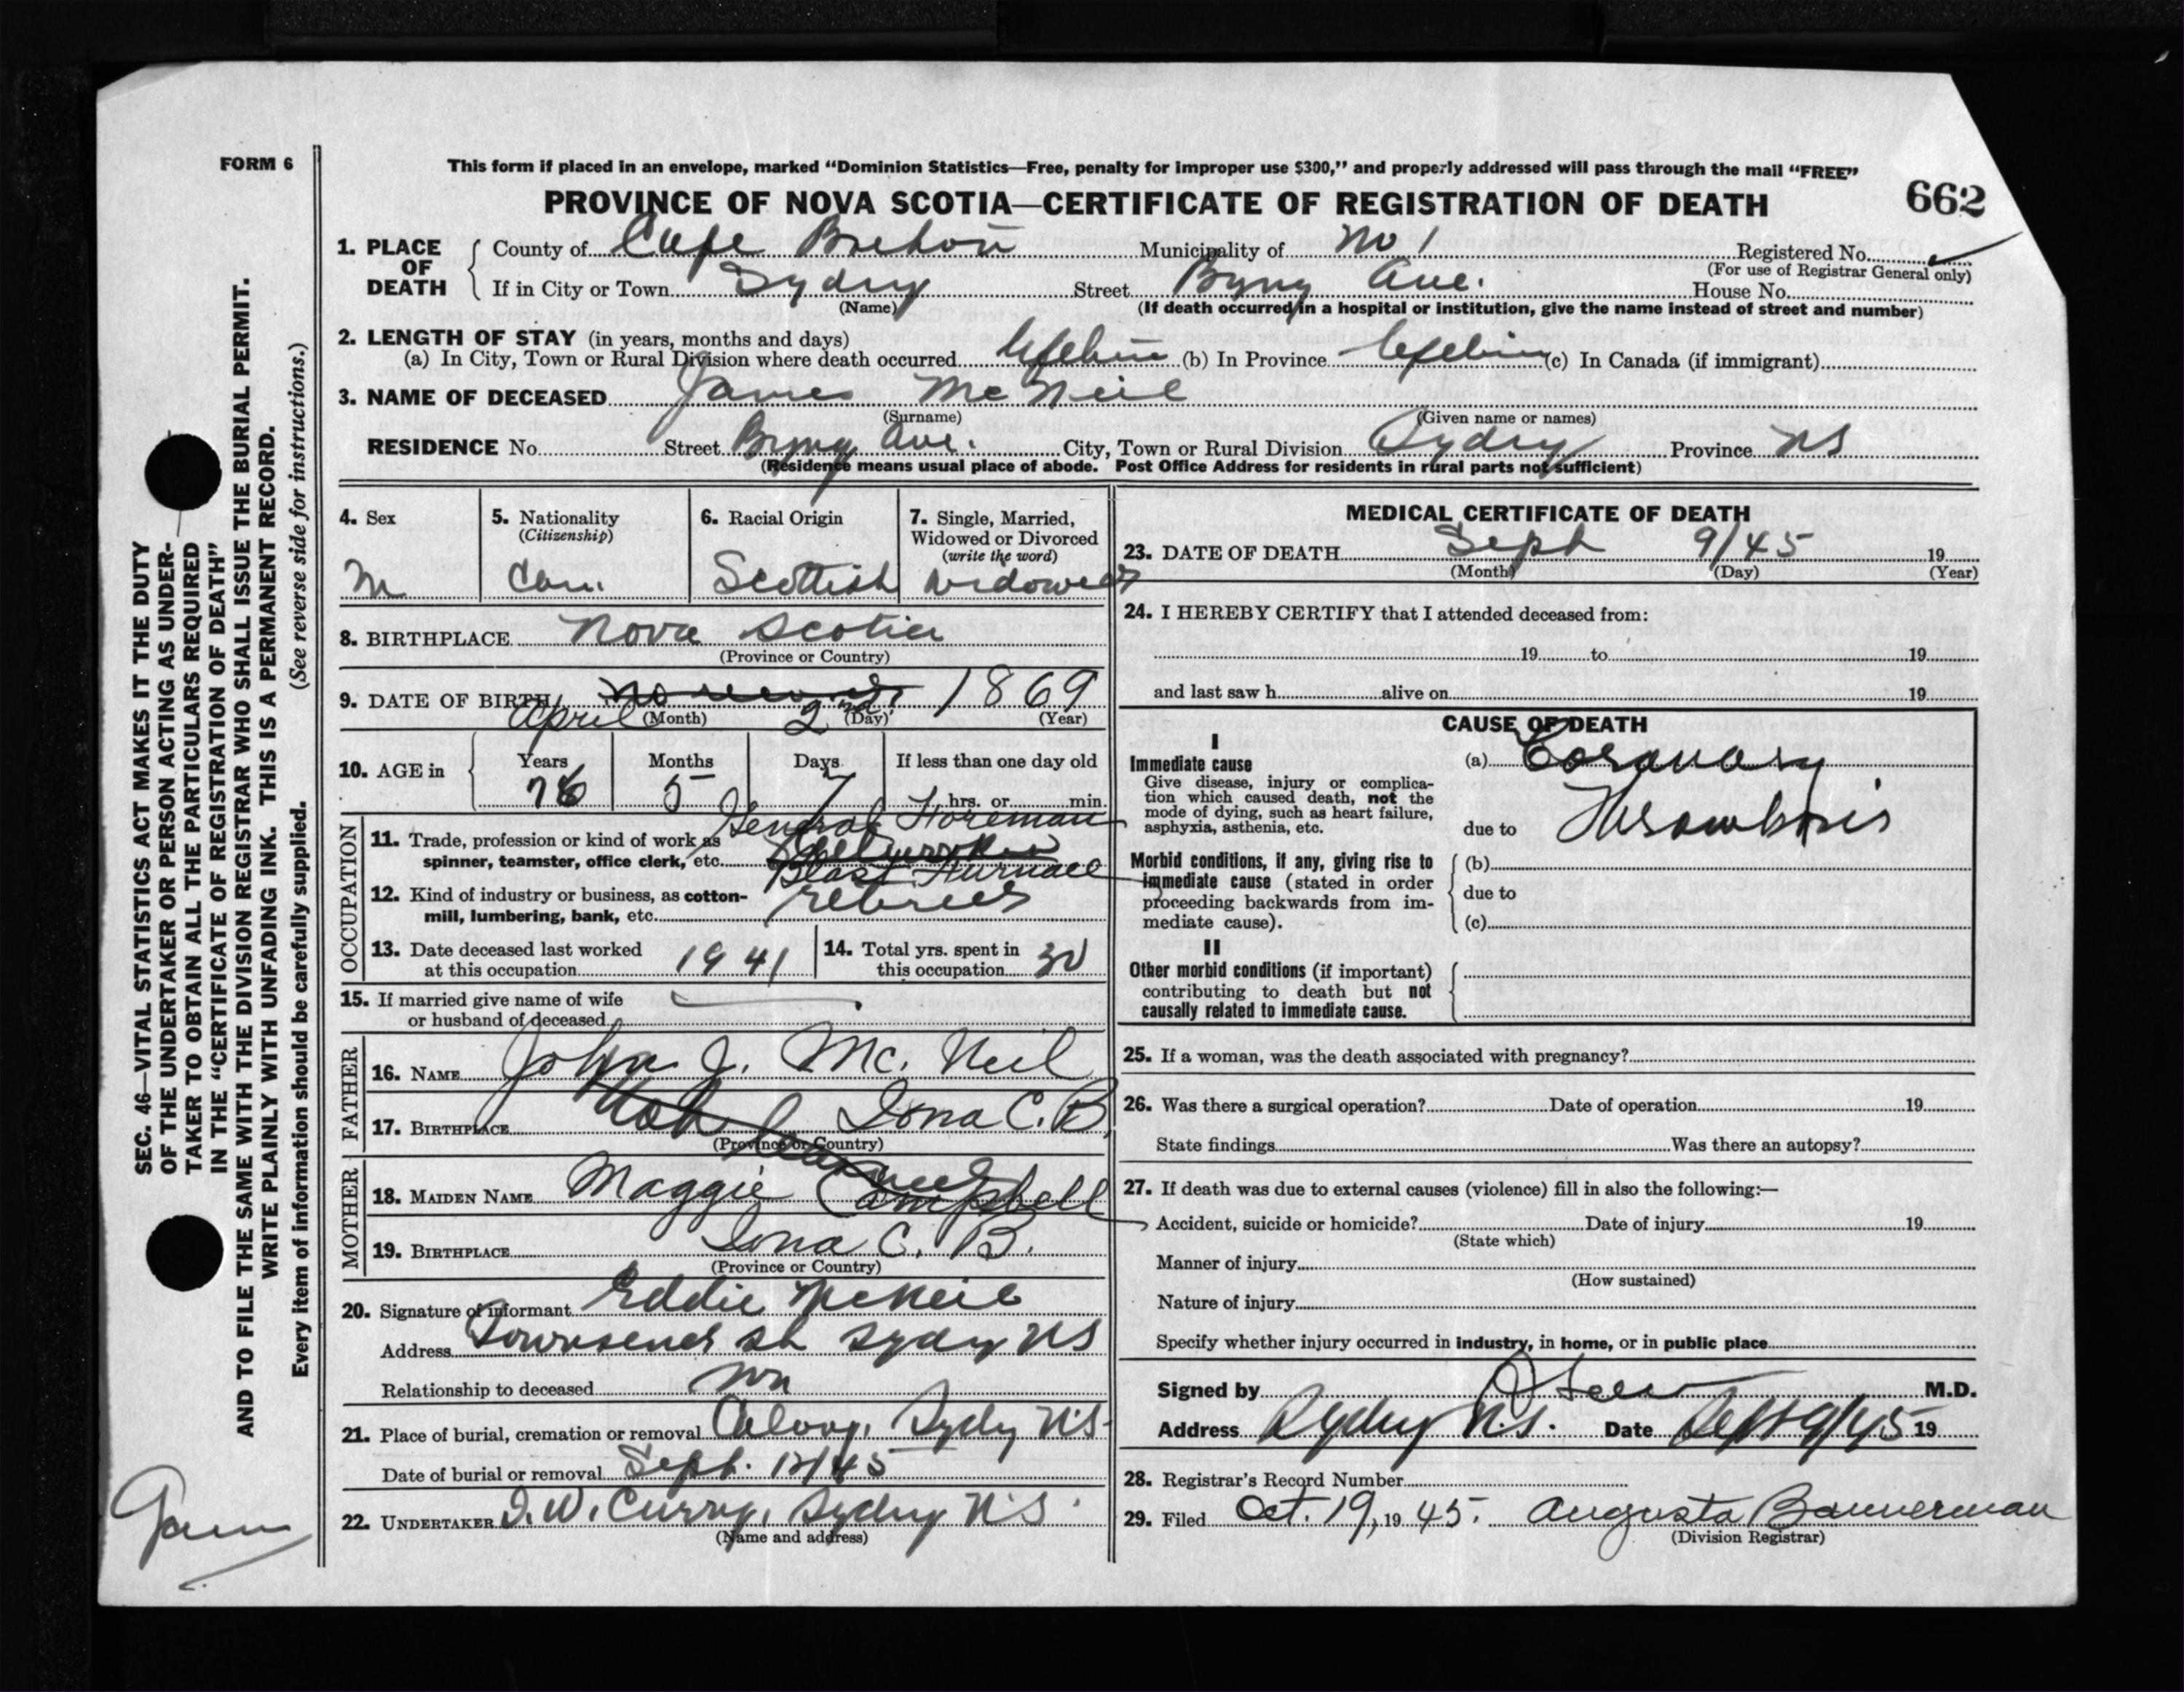 FORM 6
This form if placed in an envelope, marked "Dominion Statistics—Free, penalty for improper use $300," and properly addressed will pass through the mail "FREE"
PROVINCE OF NOVA SCOTIA—CERTIFICATE OF REGISTRATION OF DEATH
662
1. PLACE OF DEATH County of Cape Breton Municipality of No 1 Registered No.
(For use of Registrar General only)
If in City or Town Sydney Street Byng Ave. House No.
(Name) (If death occurred in a hospital or institution, give the name instead of street and number)
2. LENGTH OF STAY (in years, months and days)
(a) In City, Town or Rural Division where death occurred lifetime (b) In Province lifetime (c) In Canada (if immigrant)
3. NAME OF DECEASED James McNeil
(Surname) (Given name or names)
RESIDENCE No. Street Byng Ave. City, Town or Rural Division Sydney Province NS
(Residence means usual place of abode. Post Office Address for residents in rural parts not sufficient)
4. Sex M
5. Nationality (Citizenship) Can.
6. Racial Origin Scottish
7. Single, Married, Widowed or Divorced (write the word) widower
8. BIRTHPLACE Nova Scotia
(Province or Country)
9. DATE OF BIRTH no record 1869
April (Month) 2nd (Day) (Year)
10. AGE in Years 76 Months 5 Days 7 If less than one day old hrs. or min.
OCCUPATION
General Foreman
11. Trade, profession or kind of work as
spinner, teamster, office clerk, etc.
Blast Furnace
12. Kind of industry or business, as cotton-
mill, lumbering, bank, etc. retired
13. Date deceased last worked at this occupation 1941
14. Total yrs. spent in this occupation 30
15. If married give name of wife
or husband of deceased
FATHER
16. NAME John J. Mc. Neil
17. BIRTHPLACE Not Iona C.B.
(Province or Country)
MOTHER
18. MAIDEN NAME Maggie Campbell
19. BIRTHPLACE Iona C. B.
(Province or Country)
20. Signature of informant Eddie McNeil
Address Townsend St Sydney NS
Relationship to deceased son
21. Place of burial, cremation or removal Sydney N.S.
Date of burial or removal Sept. 12/45
22. UNDERTAKER Curry, Sydney N.S.
(Name and address)
MEDICAL CERTIFICATE OF DEATH
23. DATE OF DEATH Sept 9/45 19
(Month) (Day) (Year)
24. I HEREBY CERTIFY that I attended deceased from:
19 to 19
and last saw h alive on 19
CAUSE OF DEATH
I
Immediate cause
Give disease, injury or complica-
tion which caused death, not the
mode of dying, such as heart failure,
asphyxia, asthenia, etc.
(a) Coronary
due to Thrombosis
Morbid conditions, if any, giving rise to
immediate cause (stated in order
proceeding backwards from im-
mediate cause).
(b)
due to
(c)
II
Other morbid conditions (if important)
contributing to death but not
causally related to immediate cause.
25. If a woman, was the death associated with pregnancy?
26. Was there a surgical operation? Date of operation 19
State findings Was there an autopsy?
27. If death was due to external causes (violence) fill in also the following:—
Accident, suicide or homicide? Date of injury 19
(State which)
Manner of injury
(How sustained)
Nature of injury
Specify whether injury occurred in industry, in home, or in public place
Signed by M.D.
Address Sydney N.S. Date Sept 9/45 19
28. Registrar's Record Number
29. Filed Oct. 19, 19 45. Augusta Bannerman
(Division Registrar)
SEC. 46—VITAL STATISTICS ACT MAKES IT THE DUTY
OF THE UNDERTAKER OR PERSON ACTING AS UNDER-
TAKER TO OBTAIN ALL THE PARTICULARS REQUIRED
IN THE "CERTIFICATE OF REGISTRATION OF DEATH"
AND TO FILE THE SAME WITH THE DIVISION REGISTRAR WHO SHALL ISSUE THE BURIAL PERMIT.
WRITE PLAINLY WITH UNFADING INK. THIS IS A PERMANENT RECORD.
Every item of information should be carefully supplied. (See reverse side for instructions.)